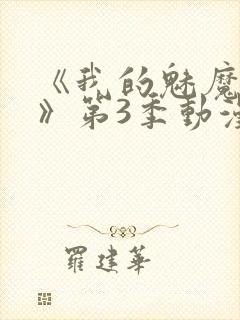 《我的魅魔
》第3季動漫
羅建華